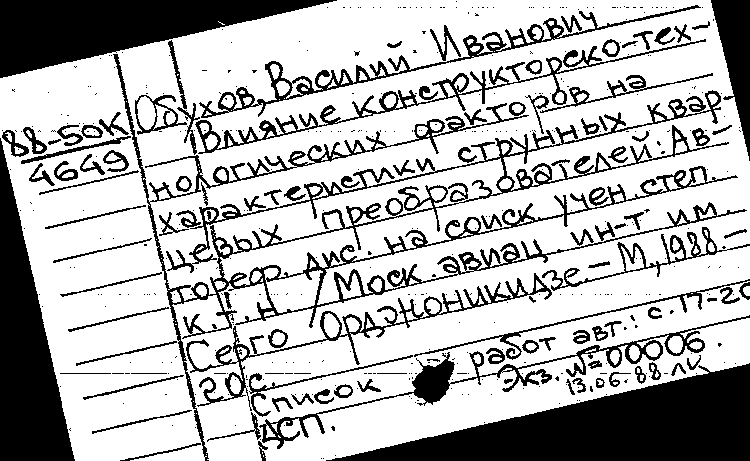 88-50К
4649
Обухов, Василий Иванович.
Влияние конструкторско-тех-
нологических факторов на
характеристики струнных квар-
цевых преобразователей: Ав-
тореф. дис. на соиск. учен. степ.
к.т.н. / Моск. авиац. ин-т им.
Серго Орджоникидзе. – М., 1988. –
20с.
Список работ авт.: с. 17-20
ДСП. Экз. №=00006.
13.06.88 ЛК